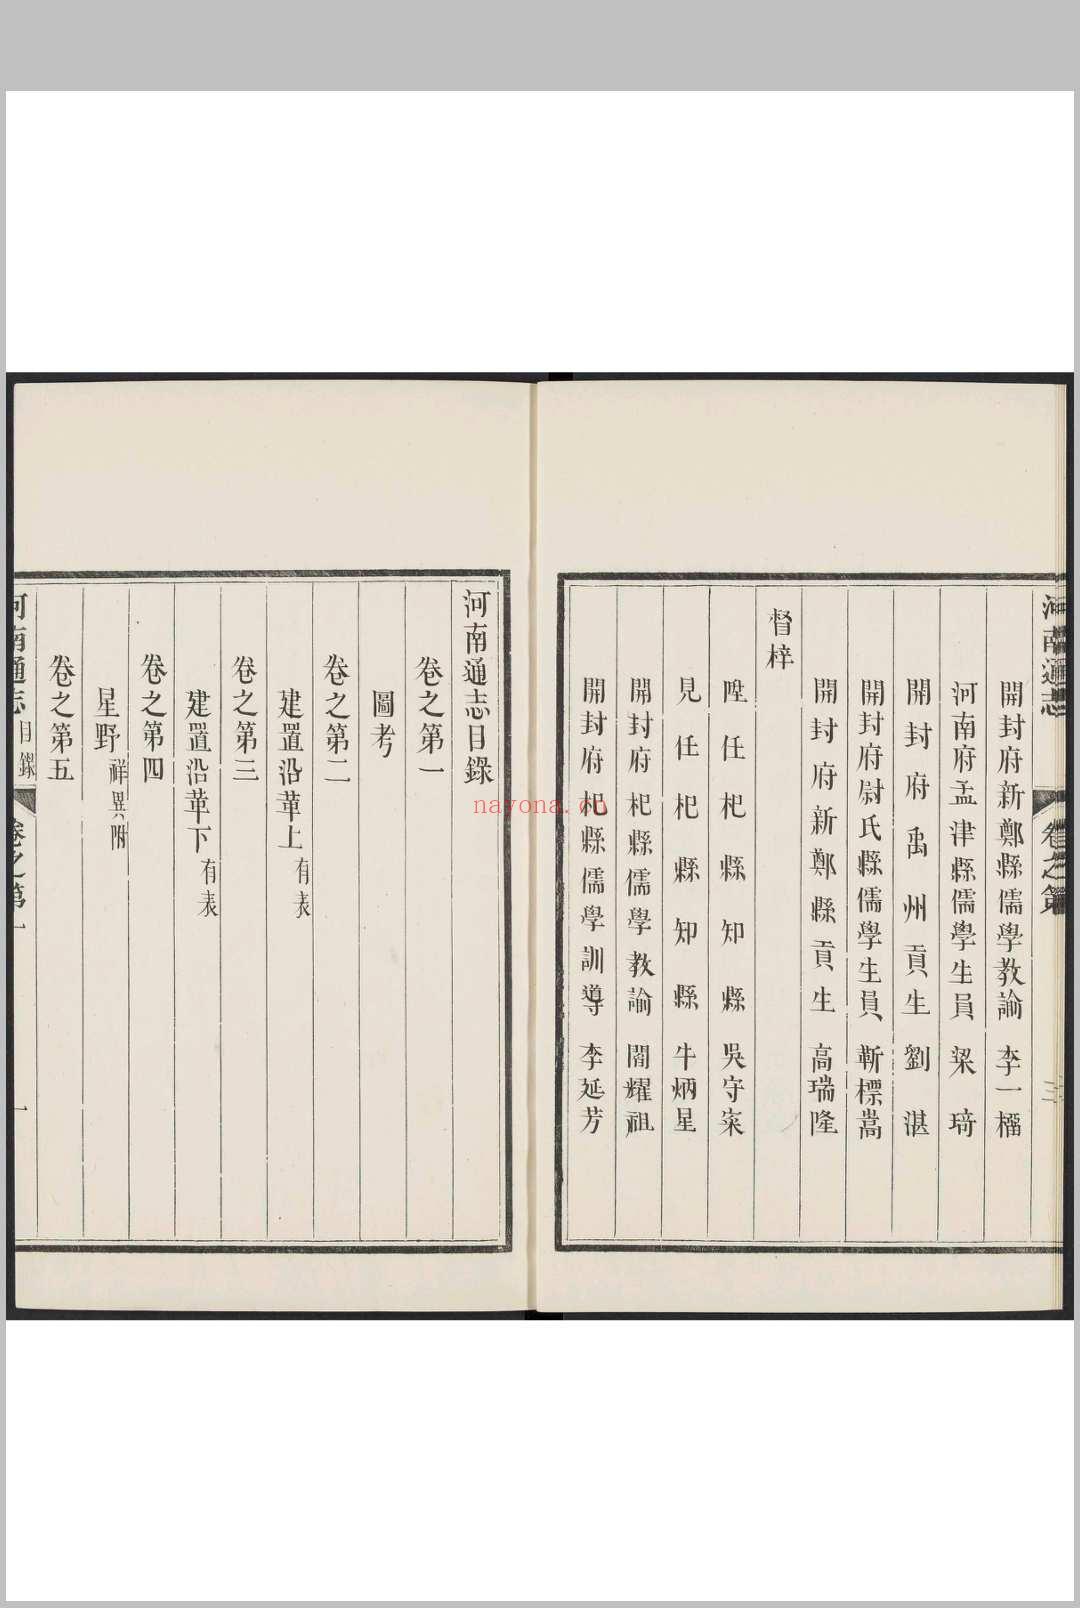 河南通志
卷之第
三
開封府新鄭縣儒學教諭 李一榗
河南府孟津縣儒學生員 梁琦
開封府禹州貢生 劉湛
開封府尉氏縣儒學生員 靳標嵩
開封府新鄭縣貢生 高瑞隆
督梓
陞任杞縣知縣 吳守寀
見任杞縣知縣 牛炳星
開封府杞縣儒學教諭 閻耀祖
開封府杞縣儒學訓導 李延芳
河南通志目錄
卷之第一
圖考
卷之第二
建置沿革上 有表
卷之第三
建置沿革下 有表
卷之第四
星野 祥異附
卷之第五
河南通志 目錄
卷之第一
一
nayona.cn